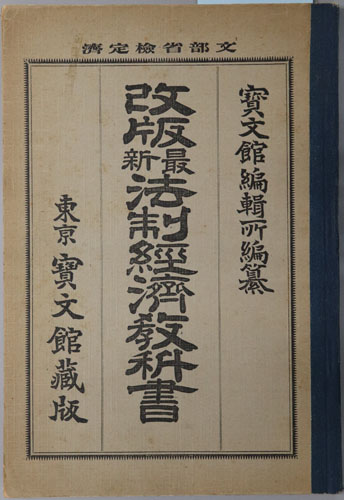 濟定檢省部文
寶文館編輯所編纂
改版最新法制經濟教科書
東京寶文館藏版